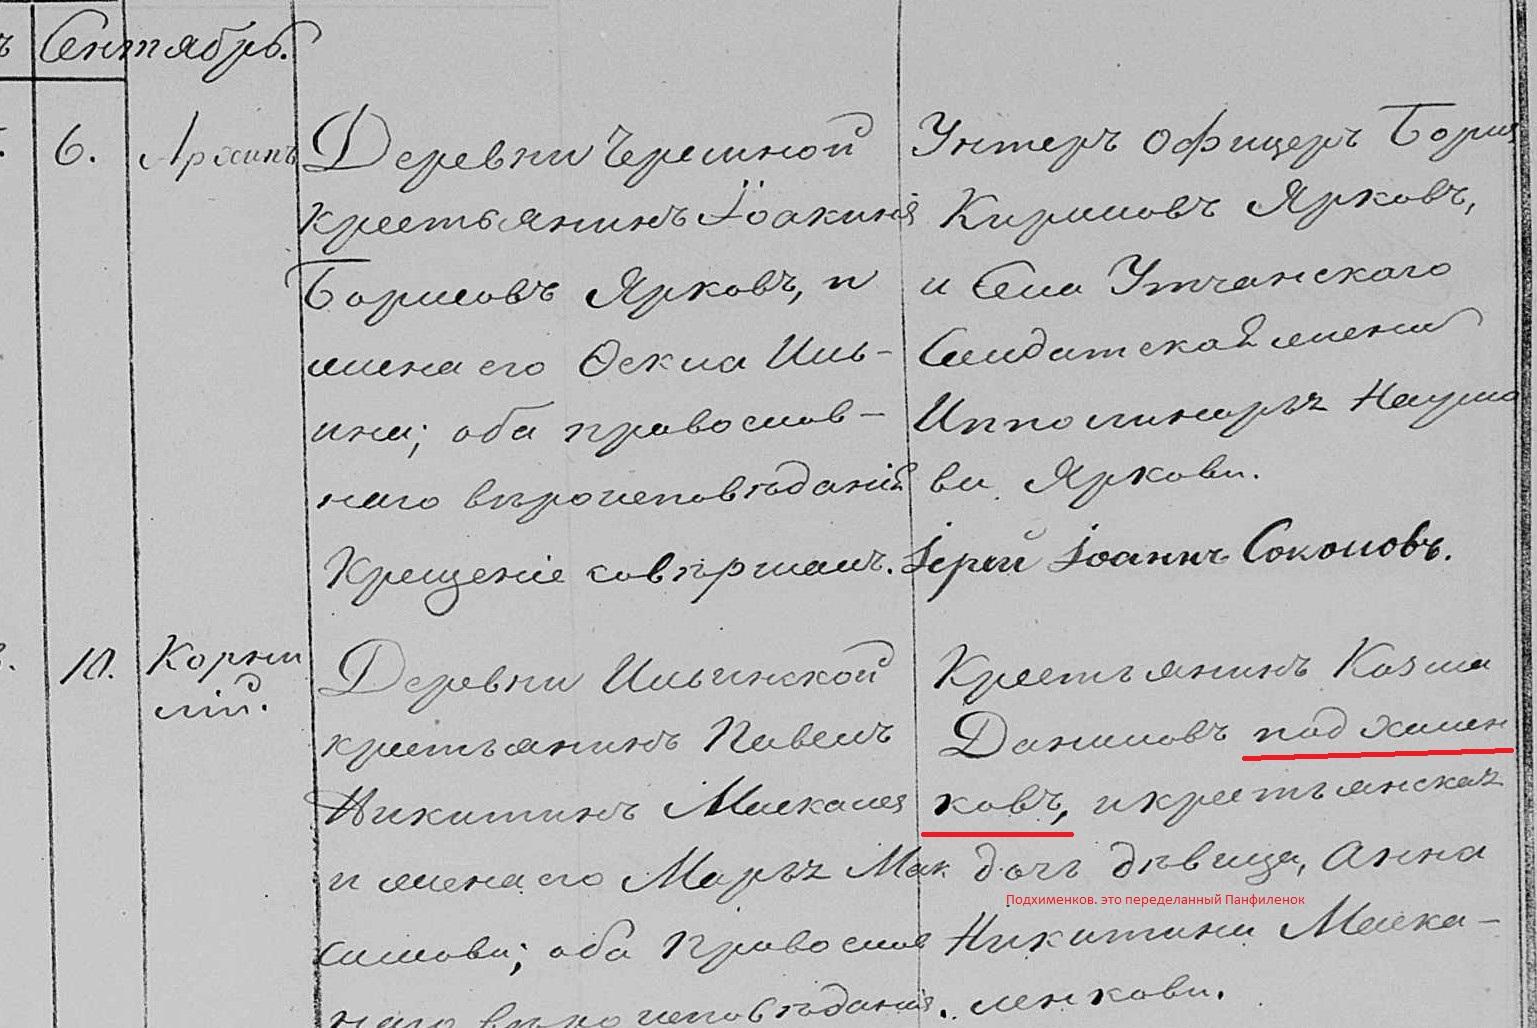 Сентябрь.
6.
Архипъ
Деревни Черемной
крестьянинъ Іоакимъ
Борисовъ Ярковъ, и
жена его Ѳекла Иль-
ина; оба православ-
наго вѣроисповѣданія
Крещеніе совершалъ.
Унтеръ офицеръ Борисъ
Кириловъ Ярковъ,
и Села Утчанскаго
Солдатская жена
Ипполинарья Наумо
ва Яркова.
Іерей Іоаннъ Соколовъ.
10.
Корни
лій.
Деревни Ильинской
крестьянинъ Павелъ
Никитинъ
и жена его Марья Мак
симова; оба Православ
наго вѣроисповѣданія.
Крестьянинъ Козма
Даниловъ подхимен
ковъ, и крестьянская
дочь дѣвица, Анна
Подхименков. это переделанный Панфиленок
Никитина Маска-
ленкова.